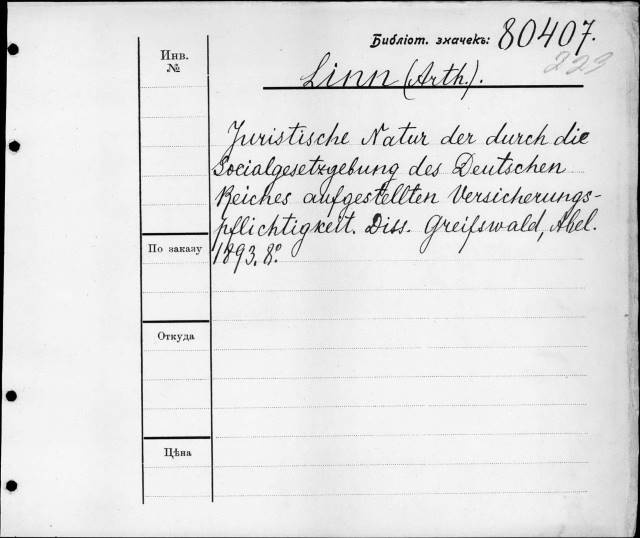 Библіот. значекъ: 80407.
223
Инв.
№
Linn (Arth.).
Juristische Natur der durch die
Socialgesetzgebung des Deutschen
Reiches aufgestellten Versicherungs-
pflichtigkeit. Diss. Greifswald, Abel.
1893. 8º.
По заказу
Откуда
Цѣна